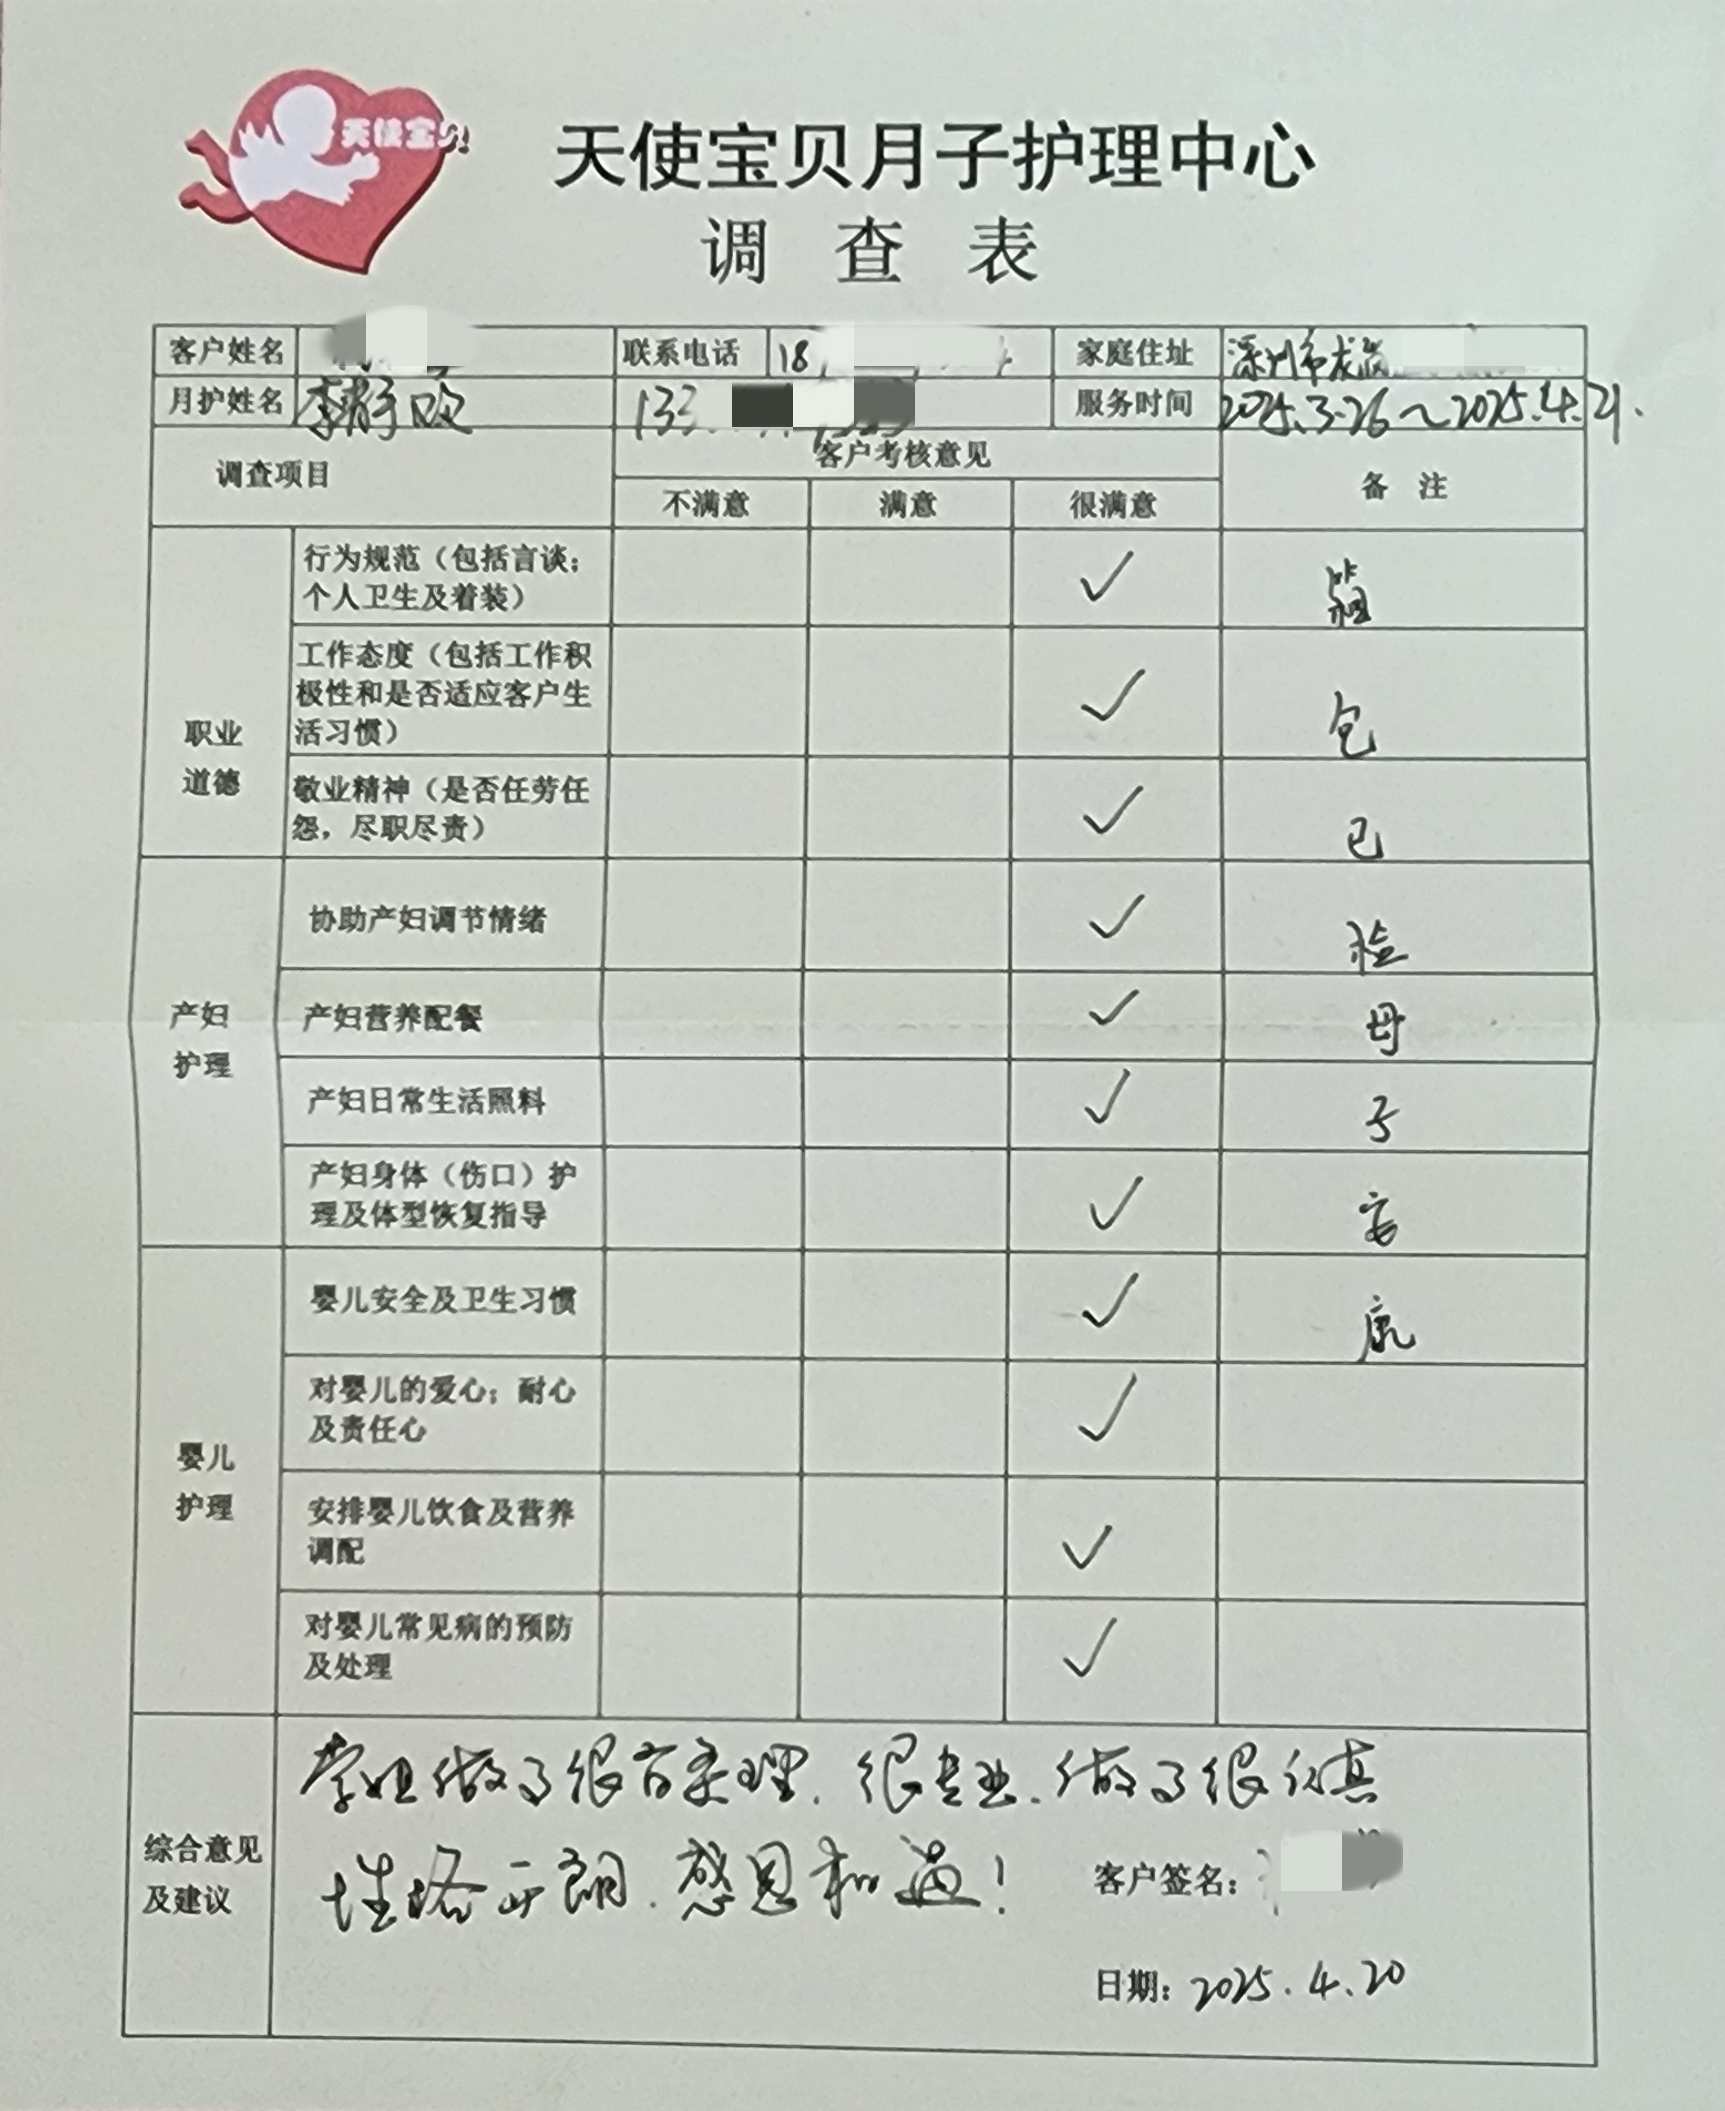 天使宝贝
天使宝贝月子护理中心
调 查 表
客户姓名 联系电话 18 家庭住址 深圳市龙岗
月护姓名 李静 133 服务时间 2025.3.26～2025.4.21.
调查项目 客户考核意见 备 注
不满意 满意 很满意
职业
道德
行为规范（包括言谈；
个人卫生及着装）
✓
工作态度（包括工作积
极性和是否适应客户生
活习惯）
✓ 包
敬业精神（是否任劳任
怨，尽职尽责）
✓ 已
产妇
护理
协助产妇调节情绪 ✓ 检
产妇营养配餐 ✓ 母
产妇日常生活照料 ✓ 子
产妇身体（伤口）护
理及体型恢复指导
✓ 安
婴儿
护理
婴儿安全及卫生习惯 ✓ 康
对婴儿的爱心；耐心
及责任心
✓
安排婴儿饮食及营养
调配
✓
对婴儿常见病的预防
及处理
✓
综合意见
及建议
李姐做了很有条理.很专业.做了很认真
性格开朗.感恩相遇！
客户签名：
日期：2025.4.20